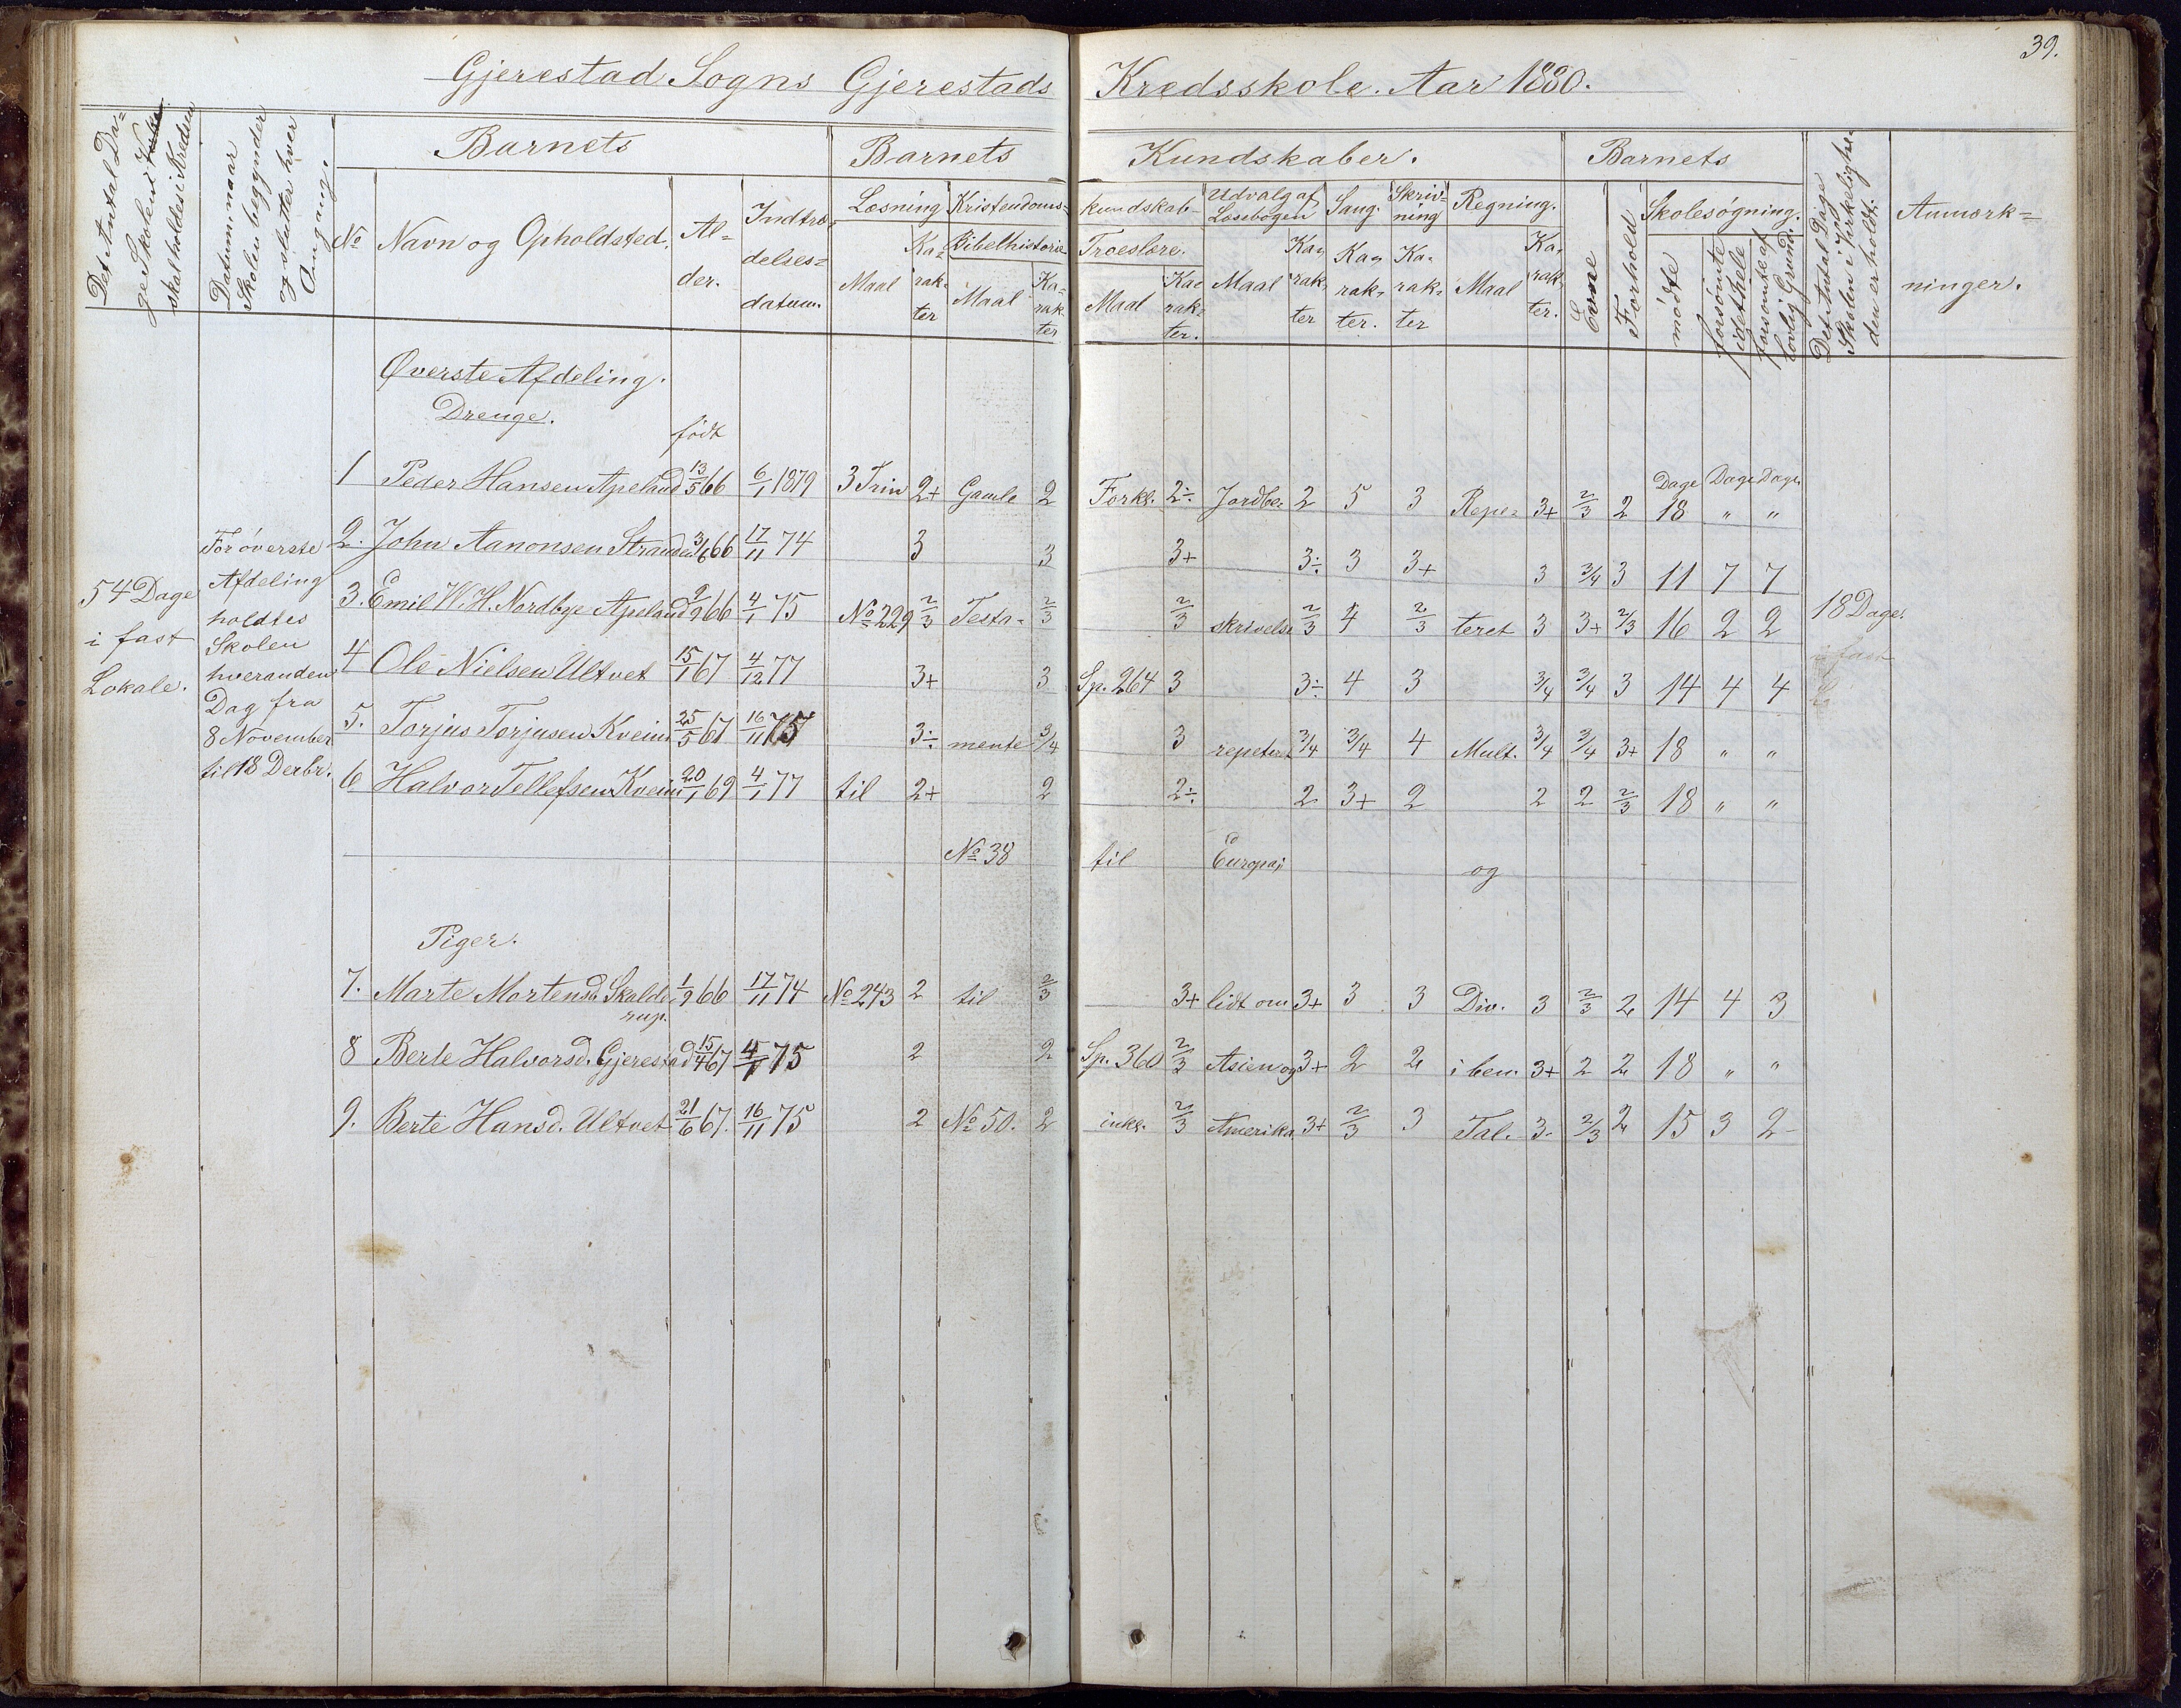 39.
Gjerestad Sogns Gjerestads Kredsskole. Aar 1880.
Det Antal Da=
ge Skolen i
skal holdes i Kredsen
Datum, naar
Skolen begynder
og slutter hver
Omgang.
Barnets
Barnets Kundskaber.
Barnets
Det Antal Dage
Skolen i Virkeligheden
er holdt.
Anmærk=
ninger.
No
Navn og Opholdsted.
Al=
der.
Indtræ=
delses=
datum.
Læsning
Maal
Ka=
rak=
ter
Kristendoms=
kundskab
Bibelhistorie
Maal
Ka=
rak=
ter
Troeslære.
Maal
Ka=
rak=
ter.
Udvalg af
Læsebogen
Maal
Ka=
rak=
ter
Sang.
Ka=
rak=
ter.
Skriv=
ning
Ka=
rak=
ter
Regning.
Maal
Ka=
rak=
ter.
Evne
Forhold
Skolesøgning.
mødte
forsømte
i det hele
forsømte af
lovlig Grund.
Øverste Afdeling.
Drenge.
født
Dage Dage Dage
1 Peder Hansen Apeland 13/5 66 6/1 1879 3 Trin 2+ Gamle 2 Forkl. 2÷ Jordbe= 2 5 3 Repe= 3+ 2/3 2 18 " "
2. John Aanonsen Stranden 3/6 66 17/11 74 3 3 3+ 3÷ 3 3+ 3 3/4 3 11 7 7
3. Emil W. H. Nordbye Apeland 2/9 66 4/1 75 No 229 2/3 Testa= 2/3 2/3 skrivelse 2/3 4 2/3 teret 3 3+ 2/3 16 2 2
4 Ole Nielsen Ultvet 15/1 67 4/12 77 3+ 3 Sp. 264 3 3÷ 4 3 3/4 3/4 3 14 4 4
5. Torjus Torjusen Kveim 25/5 67 16/11 75 3÷ mente 3/4 3 repeteret 3/4 3/4 4 Mult. 3/4 3/4 3+ 18 " "
6 Halvor Tellefsen Kveim 20/1 69 4/1 77 til 2+ 2 2÷ 2 3+ 2 2 2 2/3 18 " "
No 38 til Europa; og
54 Dage
i fast
Lokale.
For øverste
Afdeling
holdtes
Skolen
hveranden
Dag fra
8 November
til 18 Decbr.
18 Dage.
i fast
Piger.
7. Marte Mortensd. Skalde=
rup. 1/9 66 17/11 74 No 243 2 til 2/3 3+ lidt om 3+ 3 3 Div. 3 2/3 2 14 4 3
8 Berte Halvorsd. Gjerestad 15/4 67 4/1 75 2 2 Sp. 360 2/3 Asien og 3+ 2 2 i ben. 3+ 2 2 18 " "
9. Berte Hansd. Ultvet 21/6 67. 16/11 75 2 No 50. 2 inkl. 2/3 Amerika. 3+ 2/3 3 Tal. 3- 2/3 2 15 3 2